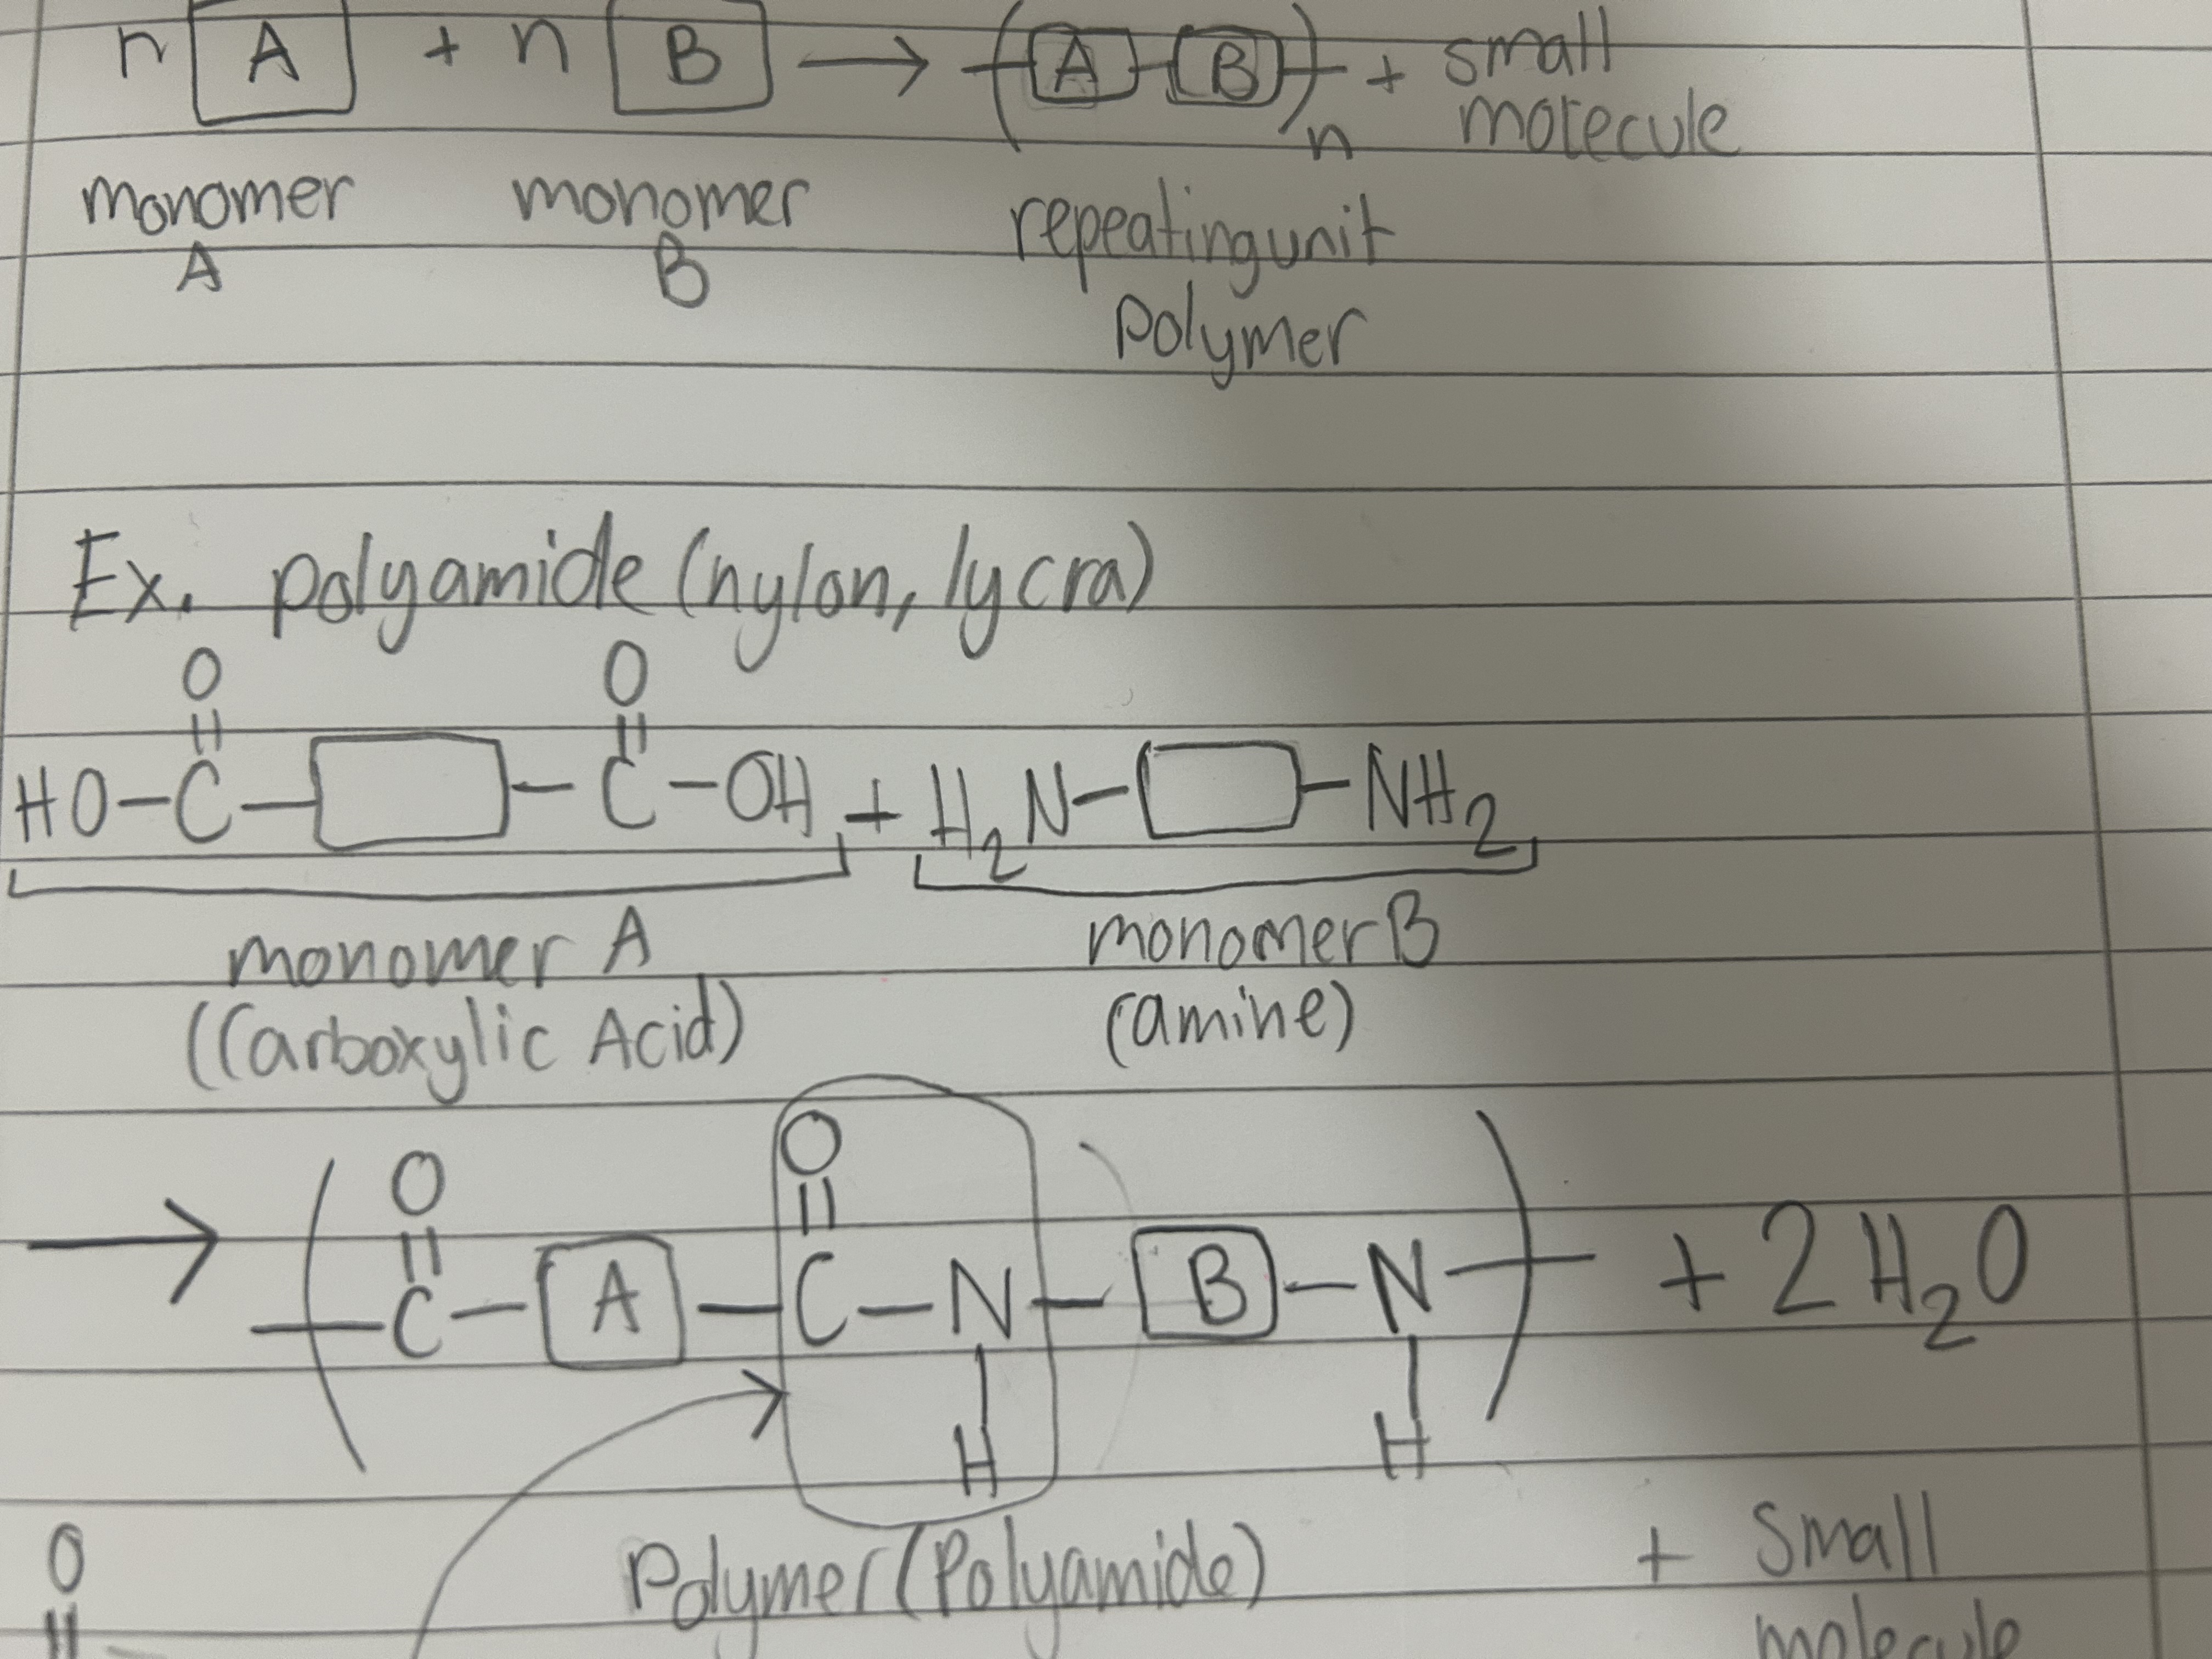 n A + n B → (A-B)n + small
molecule
monomer A
monomer B
repeatingunit
polymer
Ex. polyamide (nylon, lycra)
O O
HO-C-▭-C-OH + H₂N-▭-NH₂
monomer A
(Carboxylic Acid)
monomer B
(amine)
O O
→ (-C-A-C-N-B-N-) + 2H₂O
H H
Polymer (Polyamide)
+ Small
molecule
O